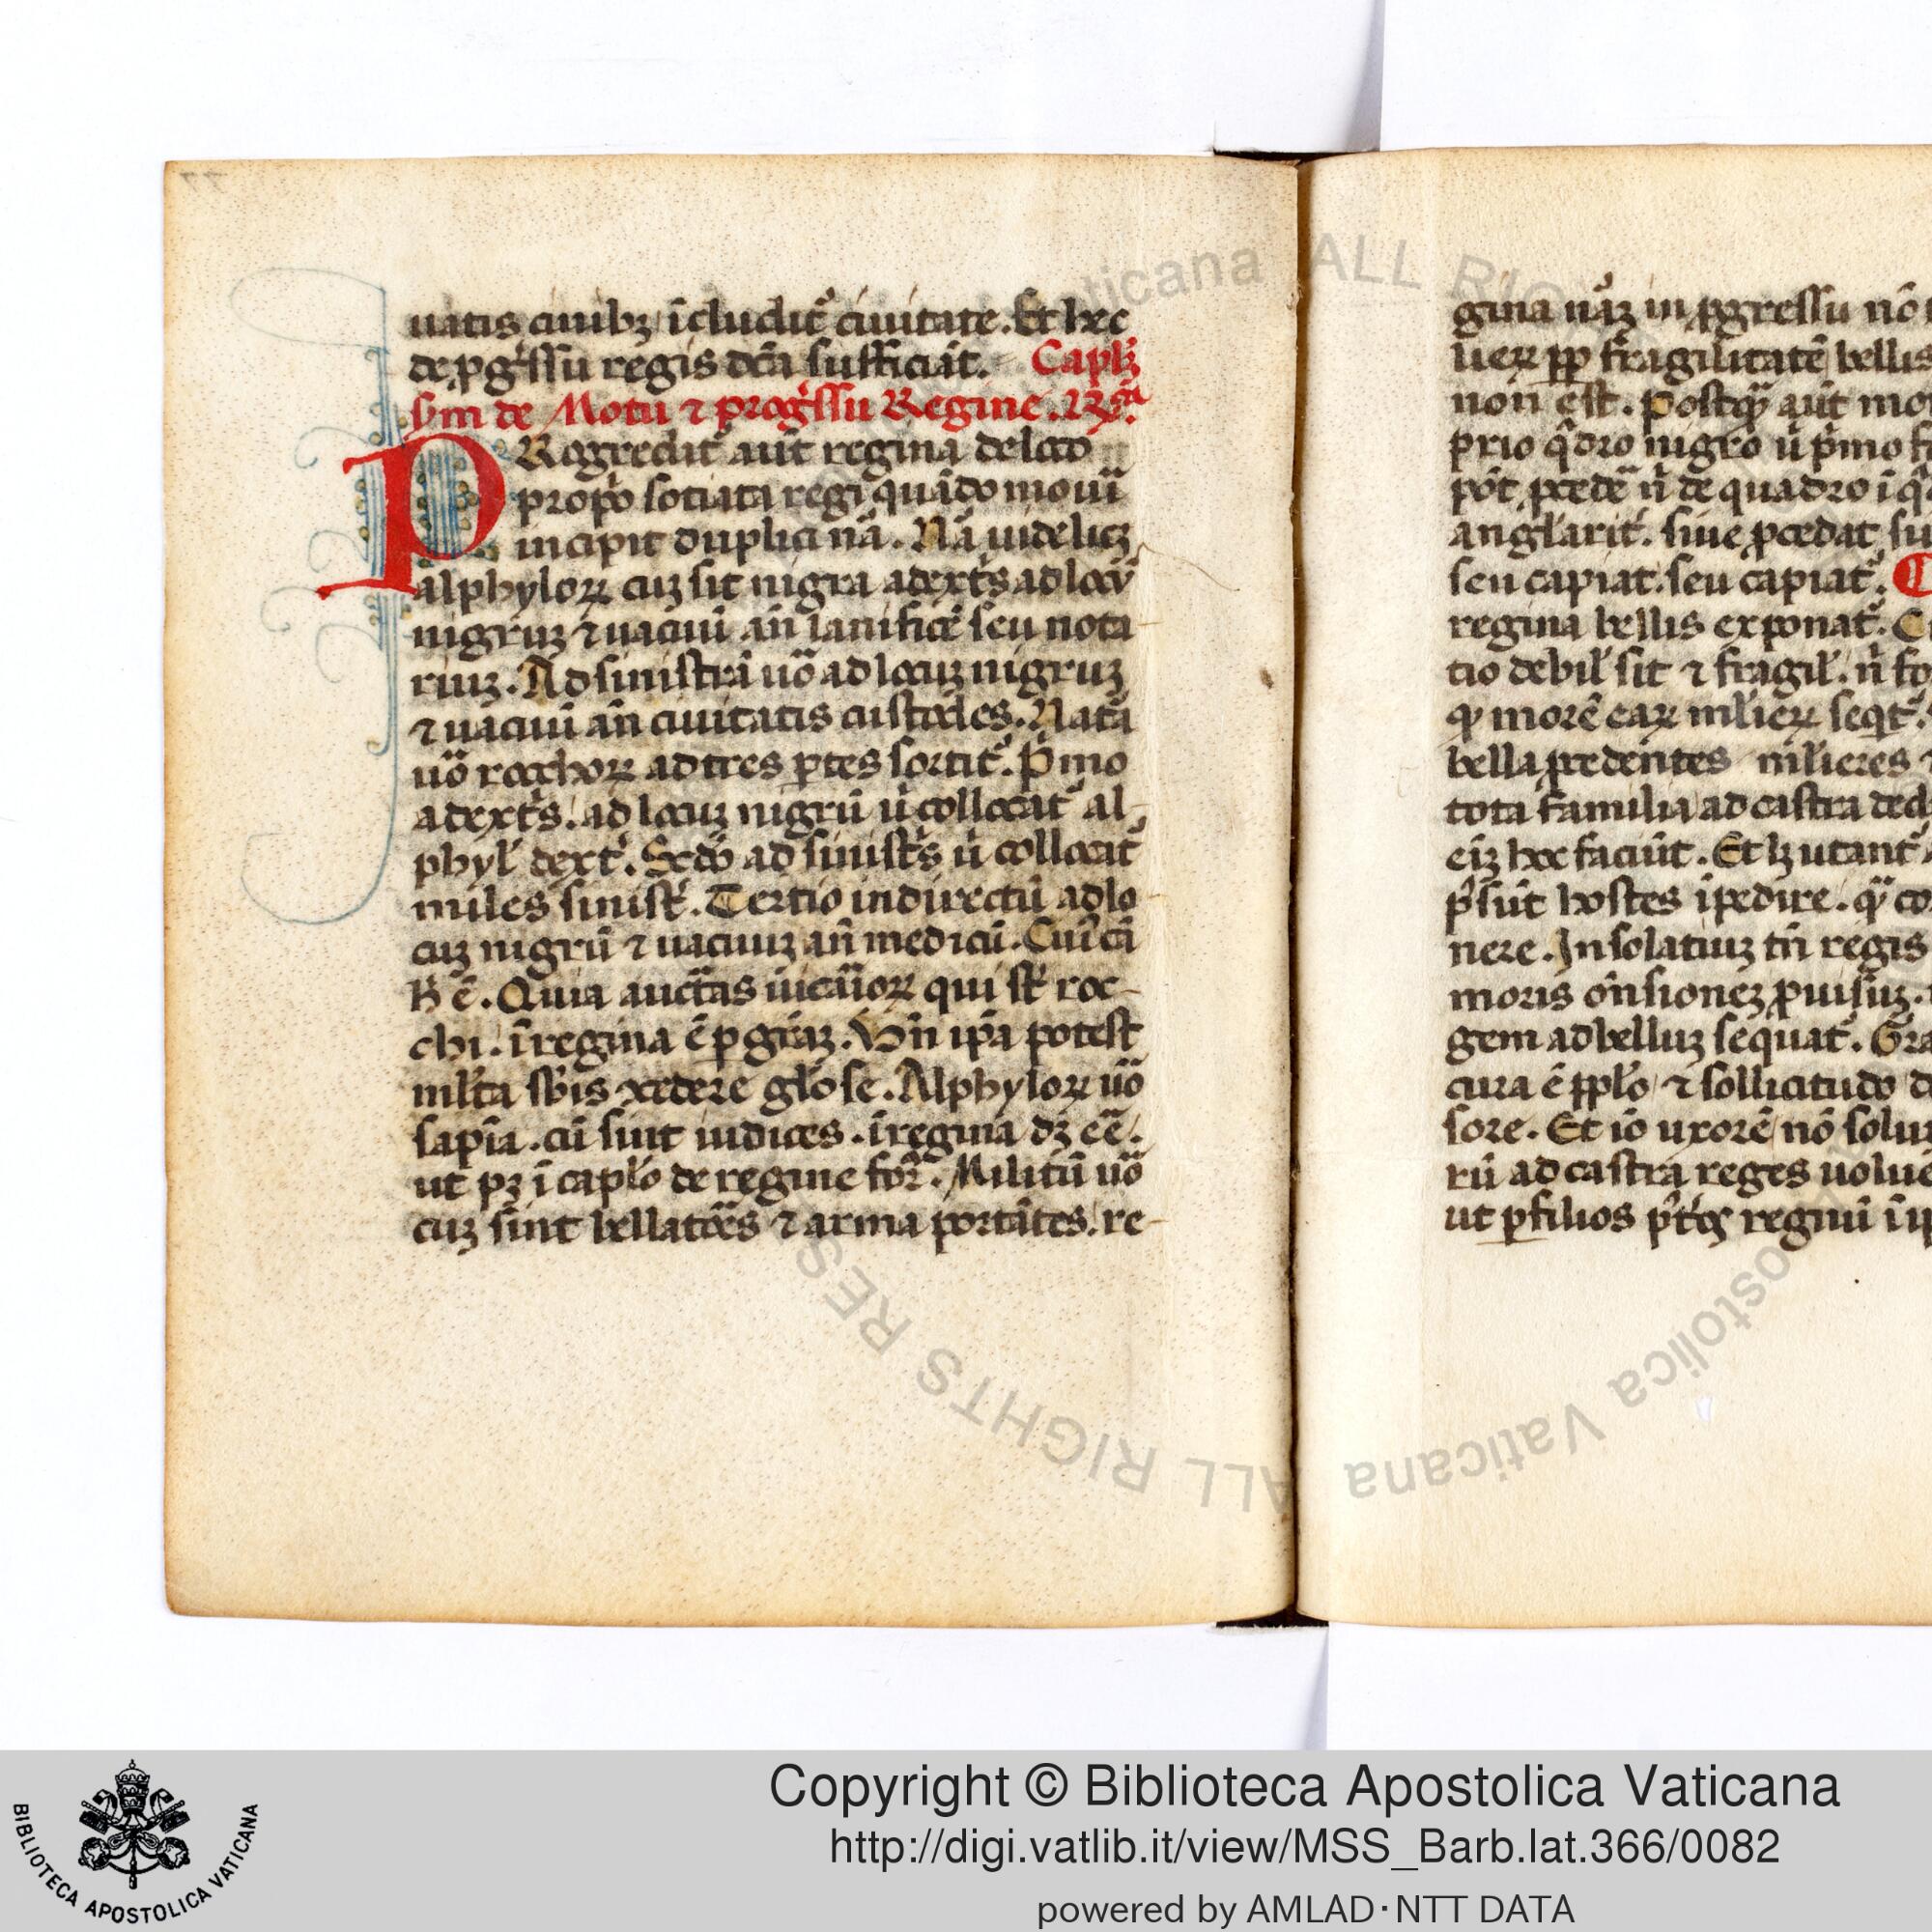 uatis ciuibꝫ īcludit᷑ ciuitate. Et hec
de ꝓgͥssu regis dc̄a sufficiāt. Caplꝫ
sm de Motu ⁊ progͥssu Regine.
PRogredit᷑ aūt regina de loco
proṗo sotiata regi quādo mouī
incipit duplici nā. Nā uidelicꝫ
alphyloꝝ cuꝫ sit nigra adextͥs ad locū
nigruꝫ ⁊ uacuū an̄ lanificē seu nota
riuꝫ. Ad sinistrā uō ad locuꝫ nigruꝫ
⁊ uacuū an̄ ciuitatis custodes. Natā
uō rocchoꝝ ad tres ꝑtes sortit᷑. Pͥmo
adextͥs. ad locuꝫ nigrū u̇ collocat᷑ al
phyl᷑ dext᷑. Scd̄o ad sinistͥs u̇ collocat᷑
miles sinist᷑. Tertio indirectū ad lo
cuꝫ nigrū ⁊ uacuuꝫ an̄ medicū. Cui᷑ cā
h̄ ē. Quia auctās uicāioꝝ qui st̄ roc
chi. ī regina ē ꝑ grāꝫ. Vn̄ ip̄a potest
ml̄ta sb̄is ꝯcedere gl̄ose. Alphyloꝝ uō
sapīa. cū sint iudices. ī regina dꝫ eē.
ut pꝫ ī caplō de regine for̄. Militū uō
cuꝫ sint bellatōes ⁊ arma portātes. re
gina nāꝫ in ꝓgressu nō
ueꝝ ꝓp fragilitatē bellis
non est. Postqꝫ aūt mo
prio q̄dro nigro u̇ pͥmo
pōt ꝓcedē n̄ de quadro ī
anglarit᷑. siue ꝓcedat su
seu capiat. seu capiat᷑.
regina bellis exponat᷑.
tio debil᷑ sit ⁊ fragil᷑. n̄ fo
ꝙ morē eaꝝ mlieꝝ seqt᷑.
bella ꝓcedentes mlieres
tota familia ad castra
eiꝫ hoc faciūt. Et lꝫ utant᷑
pͥsūt hostes īpedire. qꝫ co
nere. In solatiuꝫ tn̄ regis
moris on̄sioneꝫ ꝓuisuꝫ.
gem ad belluꝫ sequat᷑. Gra
cura ē pplō ⁊ sollicitudo d
sore. Et iō uxorē nō soluꝫ
rū ad castra reges uolue
ut ꝑ filios regnū
ALL RIGHTS RES
Apostolica Vaticana
BIBLIOTECA APOSTOLICA VATICANA
Copyright © Biblioteca Apostolica Vaticana
http://digi.vatlib.it/view/MSS_Barb.lat.366/0082
powered by AMLAD·NTT DATA